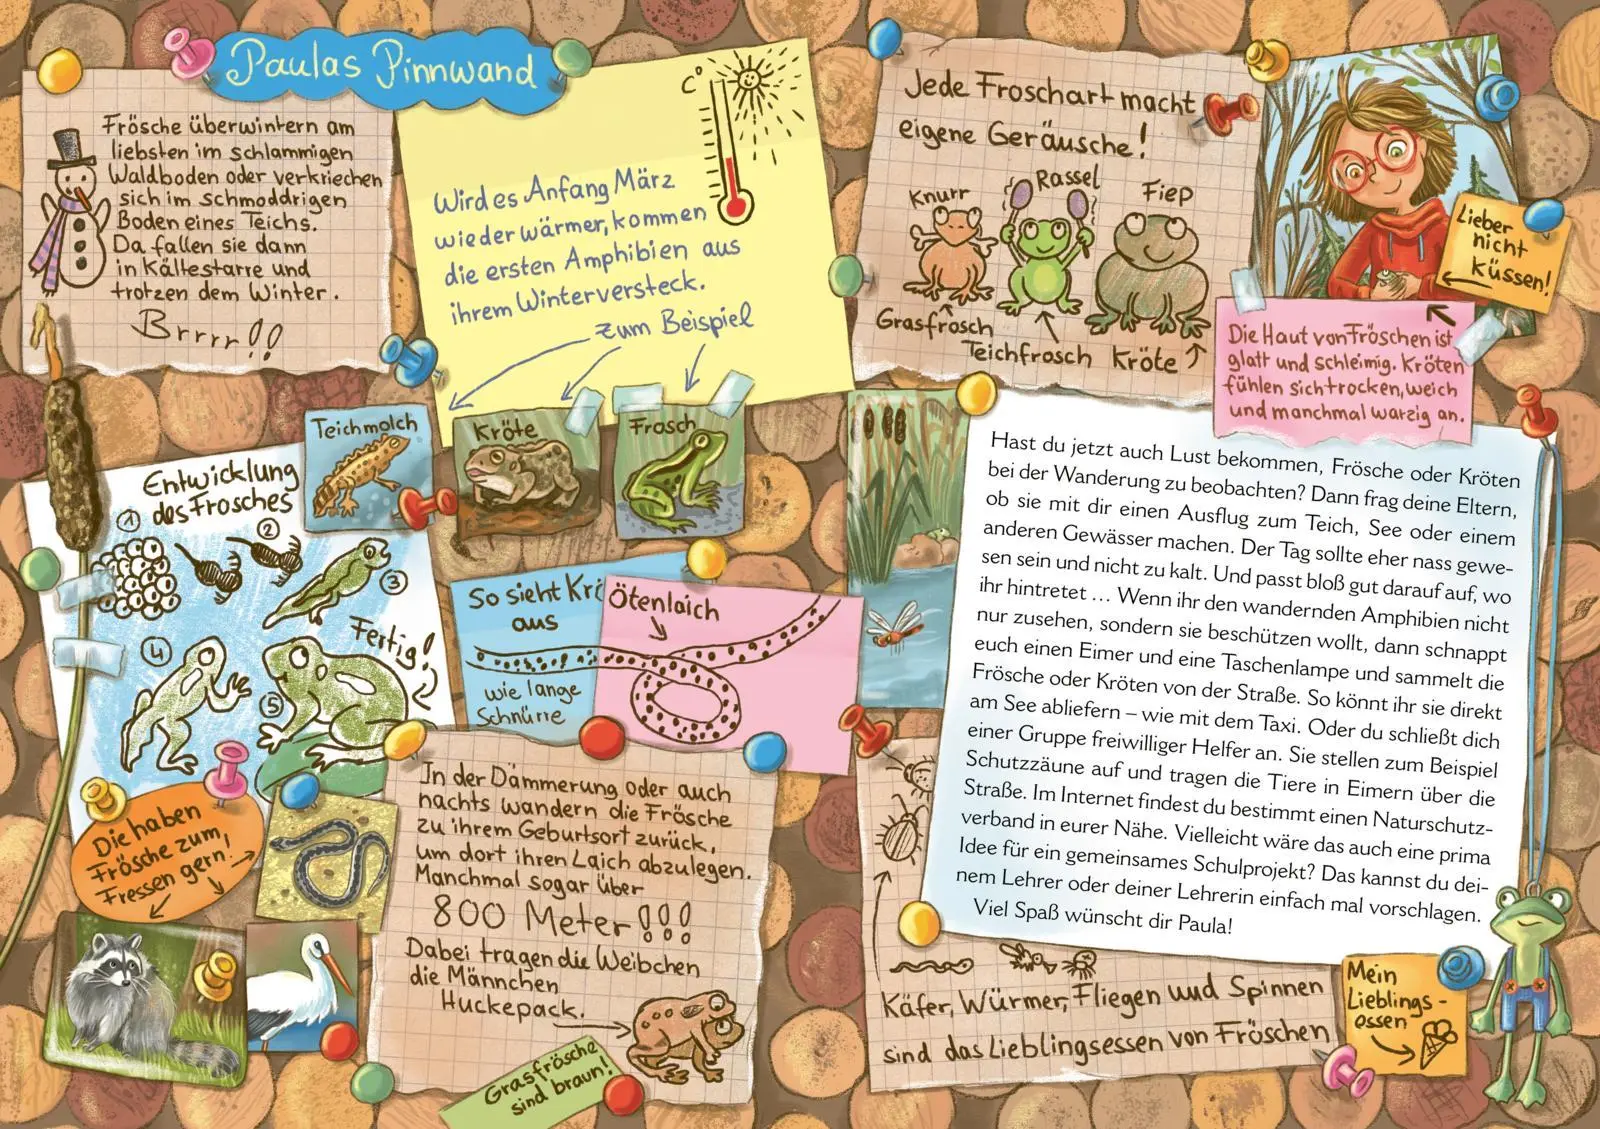 Paulas Pinnwand
Frösche überwintern am
liebsten im schlammigen
Waldboden oder verkriechen
sich im schmoddrigen
Boden eines Teichs.
Da fallen sie dann
in Kältestarre und
trotzen dem Winter.
Brrrr!!
C°
Wird es Anfang März
wieder wärmer, kommen
die ersten Amphibien aus
ihrem Winterversteck.
zum Beispiel
Teichmolch
Kröte
Frosch
Entwicklung
des Frosches
1
2
3
4
5
Fertig!
So sieht Krö
aus
wie lange
Schnürre
Ötenlaich
Die haben
Frösche zum
Fressen gern!
In der Dämmerung oder auch
nachts wandern die Frösche
zu ihrem Geburtsort zurück,
um dort ihren Laich abzulegen.
Manchmal sogar über
800 Meter!!!
Dabei tragen die Weibchen
die Männchen
Huckepack.
Grasfrösche
sind braun!
Jede Froschart macht
eigene Geräusche!
Knurr
Rassel
Fiep
Grasfrosch
Teichfrosch
Kröte
Lieber
nicht
küssen!
Die Haut von Fröschen ist
glatt und schleimig. Kröten
fühlen sich trocken, weich
und manchmal warzig an.
Hast du jetzt auch Lust bekommen, Frösche oder Kröten
bei der Wanderung zu beobachten? Dann frag deine Eltern,
ob sie mit dir einen Ausflug zum Teich, See oder einem
anderen Gewässer machen. Der Tag sollte eher nass gewe-
sen sein und nicht zu kalt. Und passt bloß gut darauf auf, wo
ihr hintretet ... Wenn ihr den wandernden Amphibien nicht
nur zusehen, sondern sie beschützen wollt, dann schnappt
euch einen Eimer und eine Taschenlampe und sammelt die
Frösche oder Kröten von der Straße. So könnt ihr sie direkt
am See abliefern – wie mit dem Taxi. Oder du schließt dich
einer Gruppe freiwilliger Helfer an. Sie stellen zum Beispiel
Schutzzäune auf und tragen die Tiere in Eimern über die
Straße. Im Internet findest du bestimmt einen Naturschutz-
verband in eurer Nähe. Vielleicht wäre das auch eine prima
Idee für ein gemeinsames Schulprojekt? Das kannst du dei-
nem Lehrer oder deiner Lehrerin einfach mal vorschlagen.
Viel Spaß wünscht dir Paula!
Käfer, Würmer, Fliegen und Spinnen
sind das Lieblingsessen von Fröschen
Mein
Lieblings-
essen